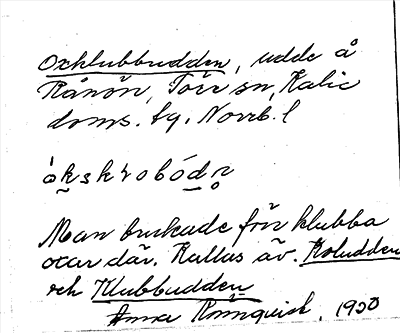 Oxklubbudden, udde å
Rånön, Töre sn, Kalix
doms. tg. Norrb. l
Man brukade för klubba
oxar där. Kallas äv. Koludden
och Klubbudden
Anna Rönnquist, 1930